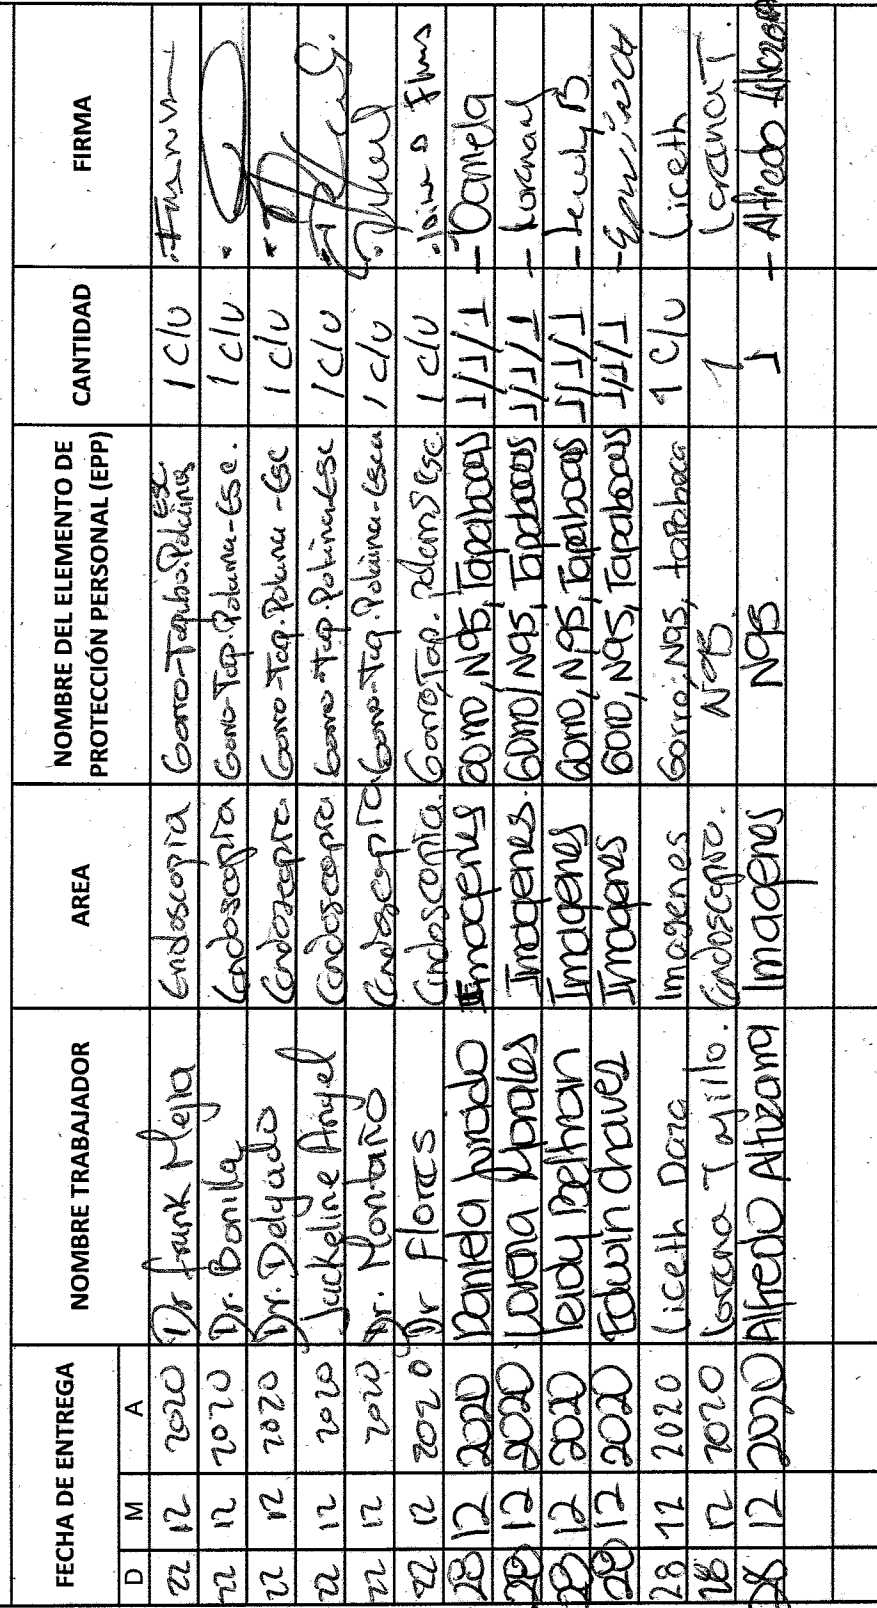 FECHA DE ENTREGA NOMBRE TRABAJADOR AREA NOMBRE DEL ELEMENTO DE PROTECCIÓN PERSONAL (EPP) CANTIDAD FIRMA
D M A
22 12 2020 Dr Frank Mejia Endoscopia Gorro-Tapabo.Polainas Esc 1 c/u
22 12 2020 Dr. Bonilla Endoscopia Gorro-Tap.Polaina-Esc. 1 c/u
22 12 2020 Dr. Delgado Endoscopia Gorro-Tap.Polaina-Esc 1 c/u
22 12 2020 Jackeline Angel Endoscopia Gorro-Tap.Polaina-Esc 1 c/u
22 12 2020 Dr. Montaño Endoscopia Gorro-Tap.Polaina-Esca 1 c/u
22 12 2020 Dr Flores Endoscopia. Gorro,Tap. Esc. 1 c/u
28 12 2020 Daniela Jurado Imagenes Gorro, N95, Tapabocas 1/1/1 - Daniela
28 12 2020 Lorena Morales Imagenes. Gorro, N95, Tapabocas 1/1/1
28 12 2020 Leidy Beltran Imagenes Gorro, N95, Tapabocas 1/1/1 - Leidy B
28 12 2020 Edwin Chavez Imagenes Gorro, N95, Tapabocas 1/1/1
28 12 2020 Liceth Daza Imagenes Gorro, N95, tapaboca 1 C/U Liceth
28 12 2020 Lorena Endoscopia. N95. 1 Lorena T.
28 12 2020 Alfredo Altizama Imagenes N95 1 - Alfredo